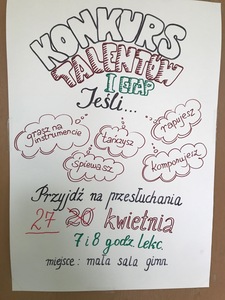 KONKURS
TALENTÓW
I ETAP
Jeśli...
grasz na
instrumencie
tańczysz
rapujesz
śpiewasz
komponujesz
Przyjdź na przesłuchania
27 20 kwietnia
7 i 8 godz. lekc.
miejsce: mała sala gimn.